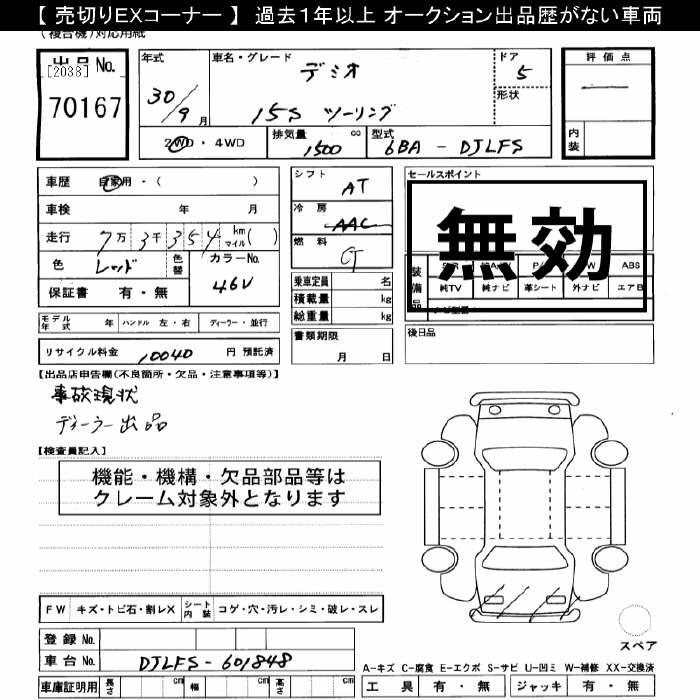 【 売切りEXコーナー 】 過去１年以上 オークション出品歴がない車両
(複合機)対応用紙
出品 No.
[2038]
70167
年式
30/9 月
車名・グレード
デミオ
15S ツーリング
ドア
5
形状
評価点
内装
2WD ・ 4WD
排気量 cc
1500
型式
6BA - DJLFS
車歴 自家用・( )
車検 年 月
走行 7万 3千 354 km マイル ( )
色 レッド 色替 カラーNo. 46V
保証書 有・無
シフト AT
冷房 AAC
燃料 G
乗車定員 名
積載量 kg
総重量 kg
セールスポイント
無効
装備品 S/R 純A P/ W ABS
純TV 純ナビ 革シート 外ナビ エアB
モデル年式 年 ハンドル 左・右 ディーラー・並行
リサイクル料金 10040 円 預託済
書類期限
月 日
後日品
【出品店申告欄(不良箇所・欠品・注意事項等)】
事故現状
ディーラー出品
【検査員記入】
機能・機構・欠品部品等は
クレーム対象外となります
FW キズ・トビ石・割レX シート内装 コゲ・穴・汚レ・シミ・破レ・スレ
登録 No.
車台 No. DJLFS - 601848
車庫証明用 長さ cm 幅 cm 高さ cm
スペア
A-キズ C-腐食 E-エクボ S-サビ U-凹ミ W-補修 XX-交換済
工具 有・無 ジャッキ 有・無